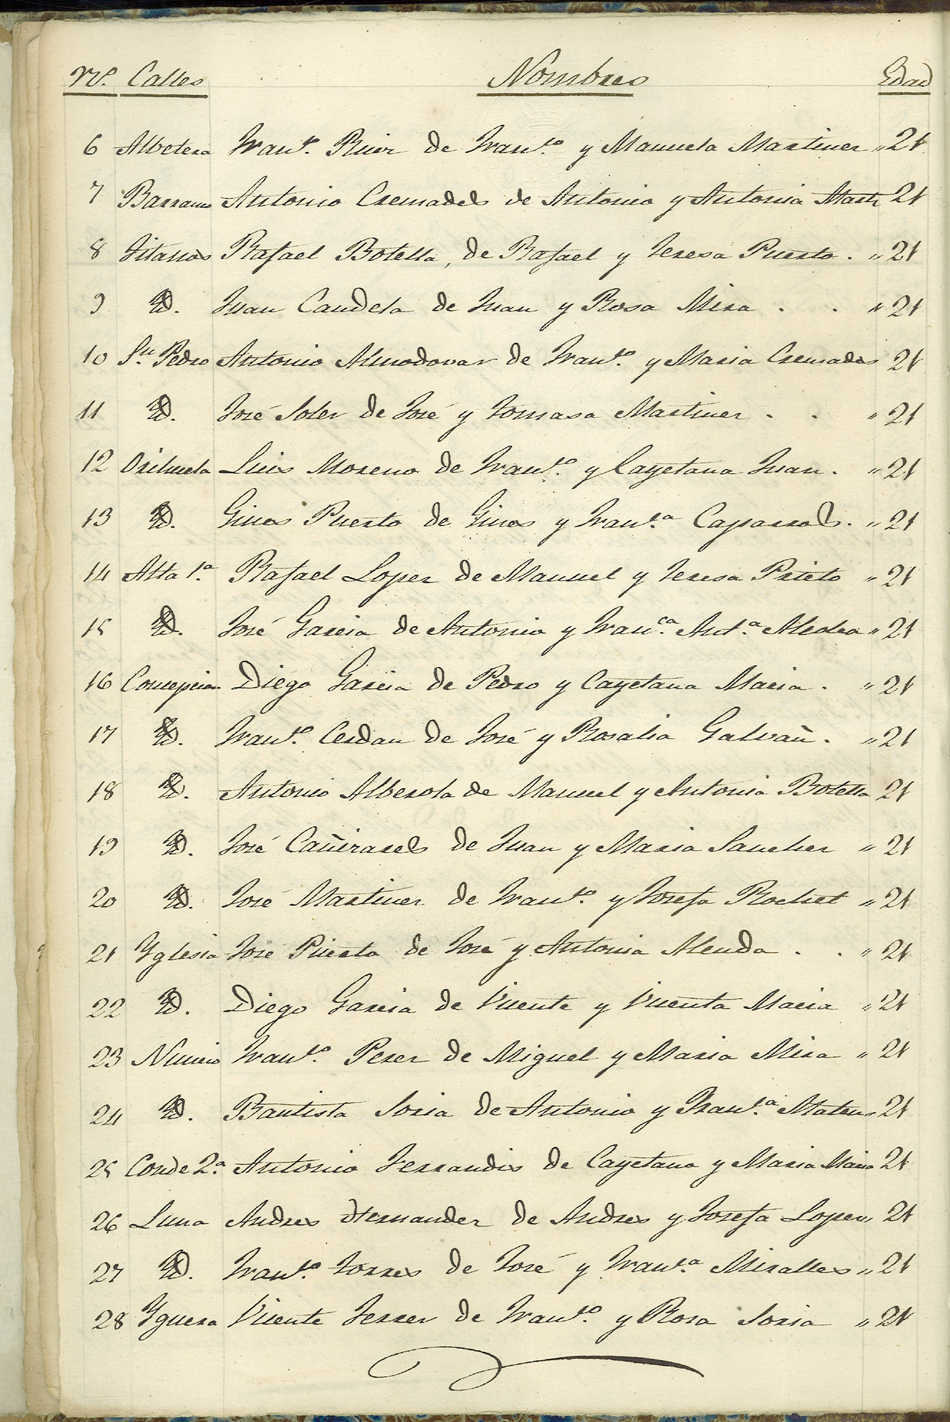 N.º Calles Nombres Edad
6 Albetera Fran.co Ruiz de Fran.co y Manuela Martinez " 21
7 Barranco Antonio Cremades de Antonio y Antonia Mart.z 21
8 Gitanos Rafael Botella, de Rafael y Teresa Puerto . " 21
9 Yd. Juan Candela de Juan y Rosa Mira . . " 21
10 S.n Pedro Antonio Almodovar de Fran.co y Maria Cremades 21
11 Yd. José Soler de José y Tomasa Martinez . . " 21
12 Orihuela Luis Moreno de Fran.co y Cayetana Juan . " 21
13 Yd. Gines Puerto de Gines y Fran.ca Caparros . " 21
14 Alta 1.a Rafael Lopez de Manuel y Teresa Prieto " 21
15 Yd. José Garcia de Antonio y Fran.ca Ant.a " 21
16 Concepcion Diego Garcia de Pedro y Cayetana Macia . " 21
17 Yd. Fran.co Cerdan de José y Rosalia Galvañ . " 21
18 Yd. Antonio Alberola de Manuel y Antonia Botella 21
19 Yd. José Cañizares de Juan y Maria Sanchez " 21
20 Yd. José Martinez de Fran.co y Josefa Rochet " 21
21 Yglesia José Puerto de José y Antonia Alenda . . " 21
22 Yd. Diego Garcia de Vicente y Vicenta Macia " 21
23 Fran.co Perez de Miguel y Maria Mira " 21
24 Yd. Bautista Soria de Antonio y Fran.ca Mateu " 21
25 Conde 2.a Antonio Ferrandis de Cayetano y Maria 21
26 Luna Andres Hernandez de Andres y Josefa Lopez " 21
27 Yd. Fran.co Torres de José y Fran.ca Miralles " 21
28 Yguera Vicente Ferrer de Fran.co y Rosa Soria " 21